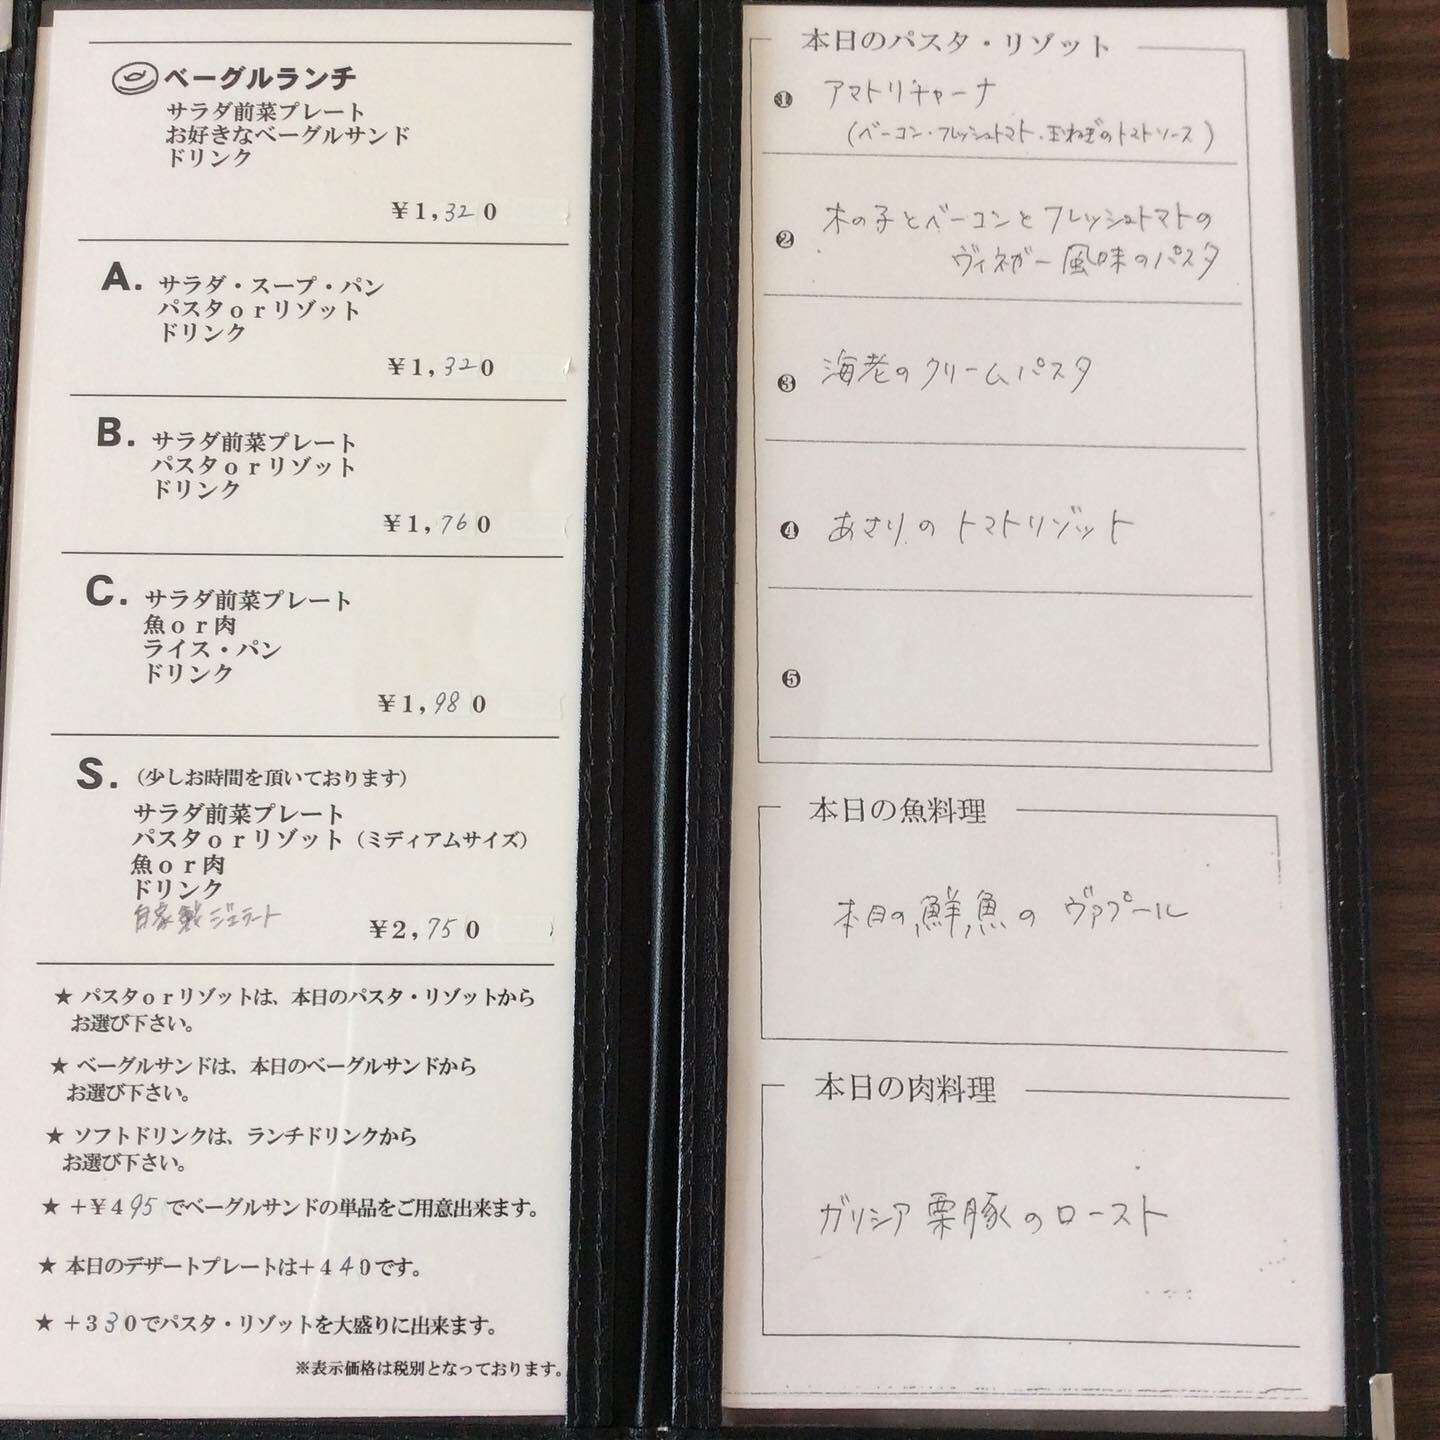 ベーグルランチ
サラダ前菜プレート
お好きなベーグルサンド
ドリンク
¥1,320
A. サラダ・スープ・パン
パスタorリゾット
ドリンク
¥1,320
B. サラダ前菜プレート
パスタorリゾット
ドリンク
¥1,760
C. サラダ前菜プレート
魚or肉
ライス・パン
ドリンク
¥1,980
S. (少しお時間を頂いております)
サラダ前菜プレート
パスタorリゾット(ミディアムサイズ)
魚or肉
ドリンク
自家製ジェラート
¥2,750
★ パスタorリゾットは、本日のパスタ・リゾットから
お選び下さい。
★ ベーグルサンドは、本日のベーグルサンドから
お選び下さい。
★ ソフトドリンクは、ランチドリンクから
お選び下さい。
★ +¥495でベーグルサンドの単品をご用意出来ます。
★ 本日のデザートプレートは+440です。
★ +330でパスタ・リゾットを大盛りに出来ます。
※表示価格は税別となっております。
本日のパスタ・リゾット
❶ アマトリチャーナ
(ベーコン・フレッシュトマト・玉ねぎのトマトソース)
❷ 木の子とベーコンとフレッシュトマトの
ヴィネガー風味のパスタ
❸ 海老のクリームパスタ
❹ あさりのトマトリゾット
❺
本日の魚料理
本日の鮮魚のヴァプール
本日の肉料理
ガリシア栗豚のロースト